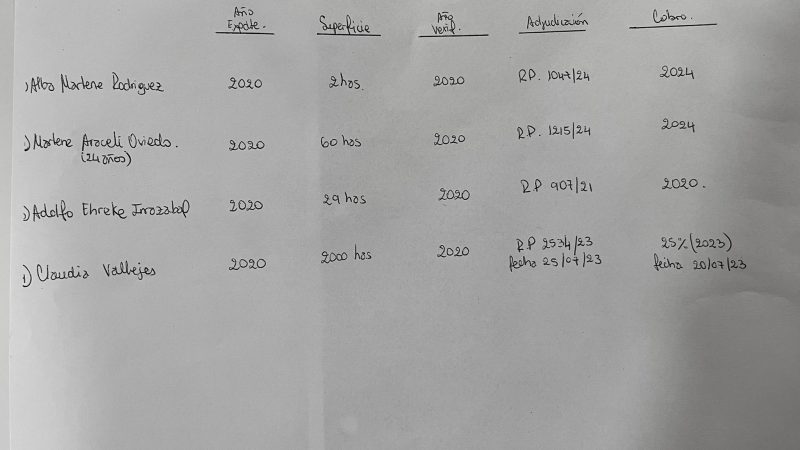 Año Expdte. Superficie Año Verif. Adjudicación Cobro.
1) Alba Marlene Rodriguez 2020 2 has. 2020 RP. 1047/24 2024
1) Marlene Araceli Oviedo. 2020 60 has 2020 RP. 1215/24 2024
(24 años)
1) Adolfo Ehreke Irrazabal 2020 29 has 2020 RP 907/21 2020.
1) Claudia Vallejos 2020 2000 has 2020 RP 2534/23 25% (2023)
fecha 25/07/23 fecha 20/07/23